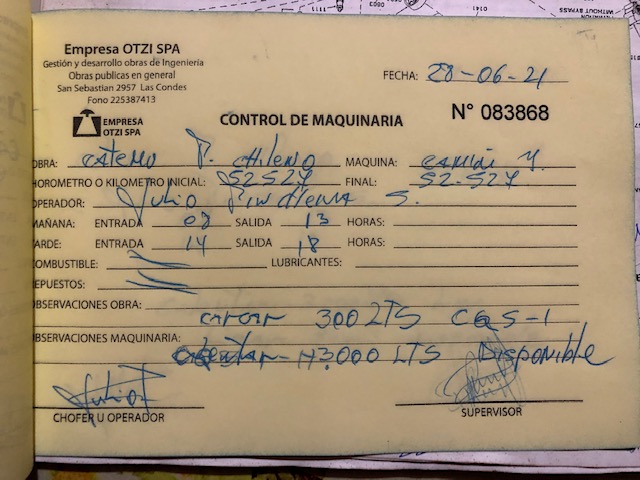 Empresa OTZI SPA
Gestión y desarrollo obras de Ingeniería
Obras publicas en general
San Sebastian 2957 Las Condes
Fono 225387413
FECHA: 28-06-21
EMPRESA
OTZI SPA
CONTROL DE MAQUINARIA
N° 083868
OBRA: P. Chileno MAQUINA:
HOROMETRO O KILOMETRO INICIAL: 52-524 FINAL: 52-524
OPERADOR: Julio S.
MAÑANA: ENTRADA 09 SALIDA 13 HORAS:
TARDE: ENTRADA 14 SALIDA 18 HORAS:
COMBUSTIBLE: LUBRICANTES:
REPUESTOS:
OBSERVACIONES OBRA: 300 LTS CQS-1
OBSERVACIONES MAQUINARIA: 43000 LTS Disponible
CHOFER U OPERADOR
SUPERVISOR